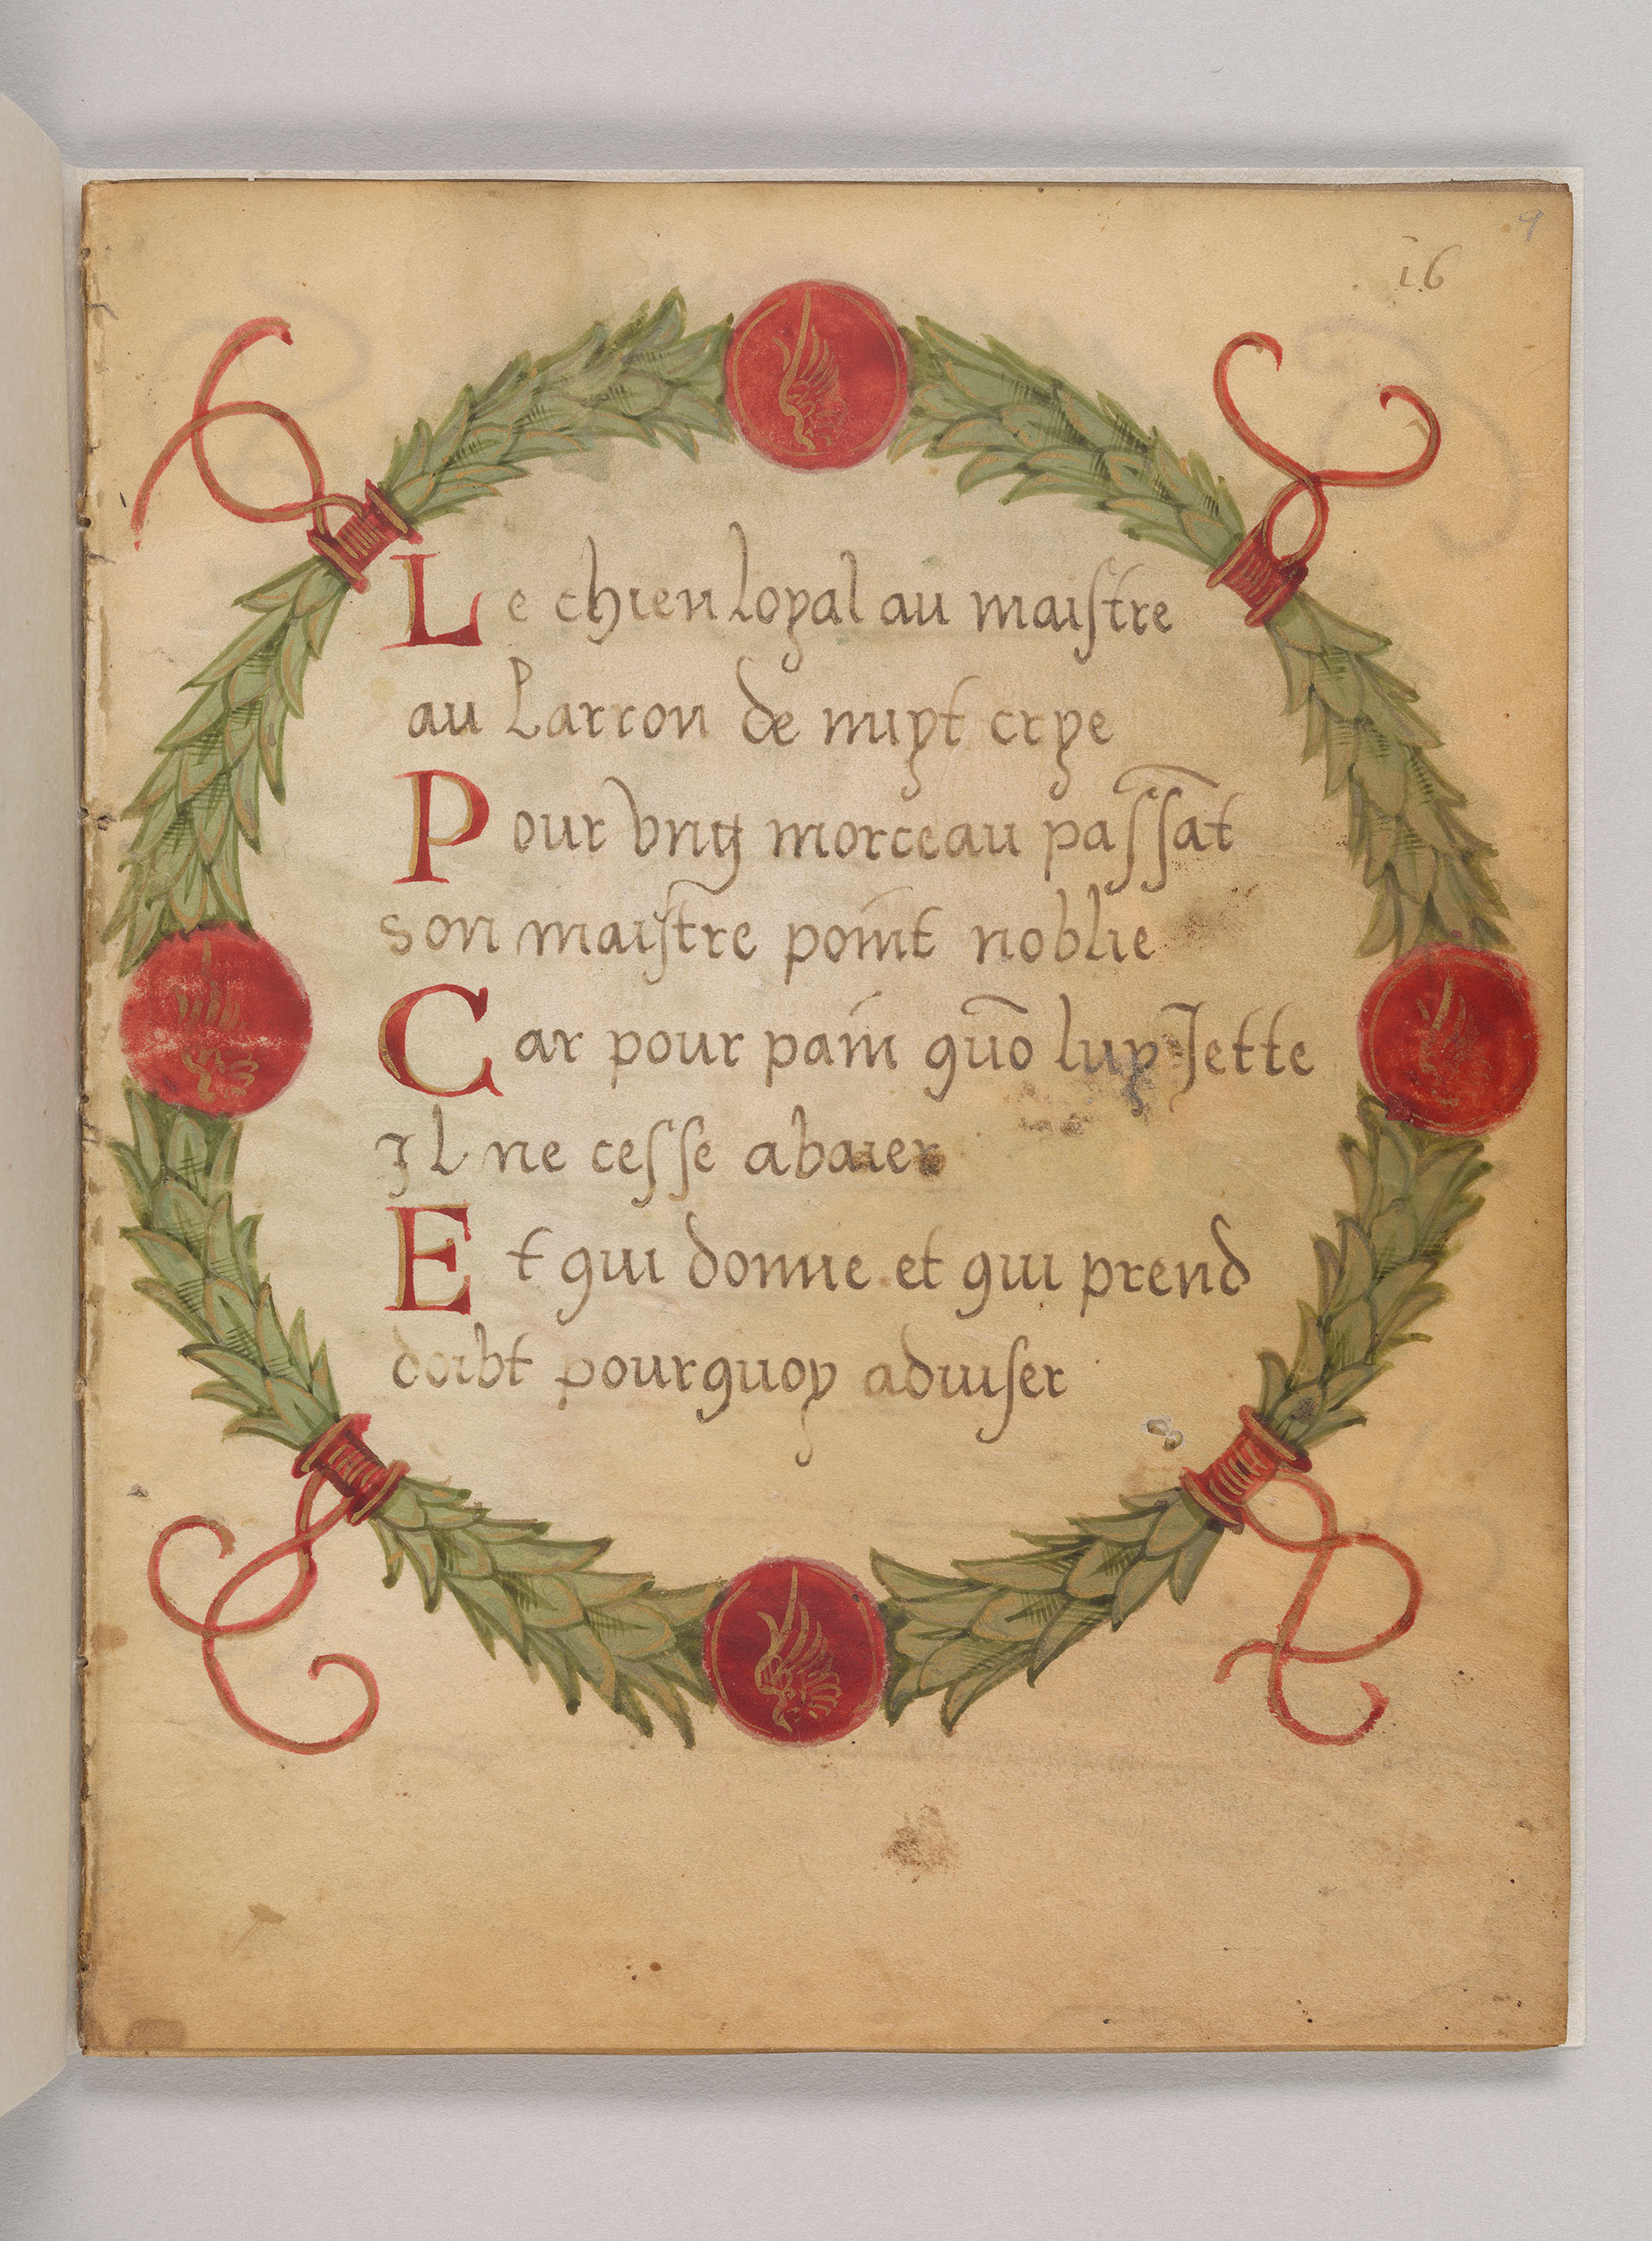 9
16
Le chien loyal au maiſtre
au Larron de nuyt crye
Pour vng morceau paſſãt
son maiſtre point noblie
Car pour pain quõ luy Jette
Jl ne ceſſe abaier
Et qui donne et qui prend
doibt pourquoy aduiſer